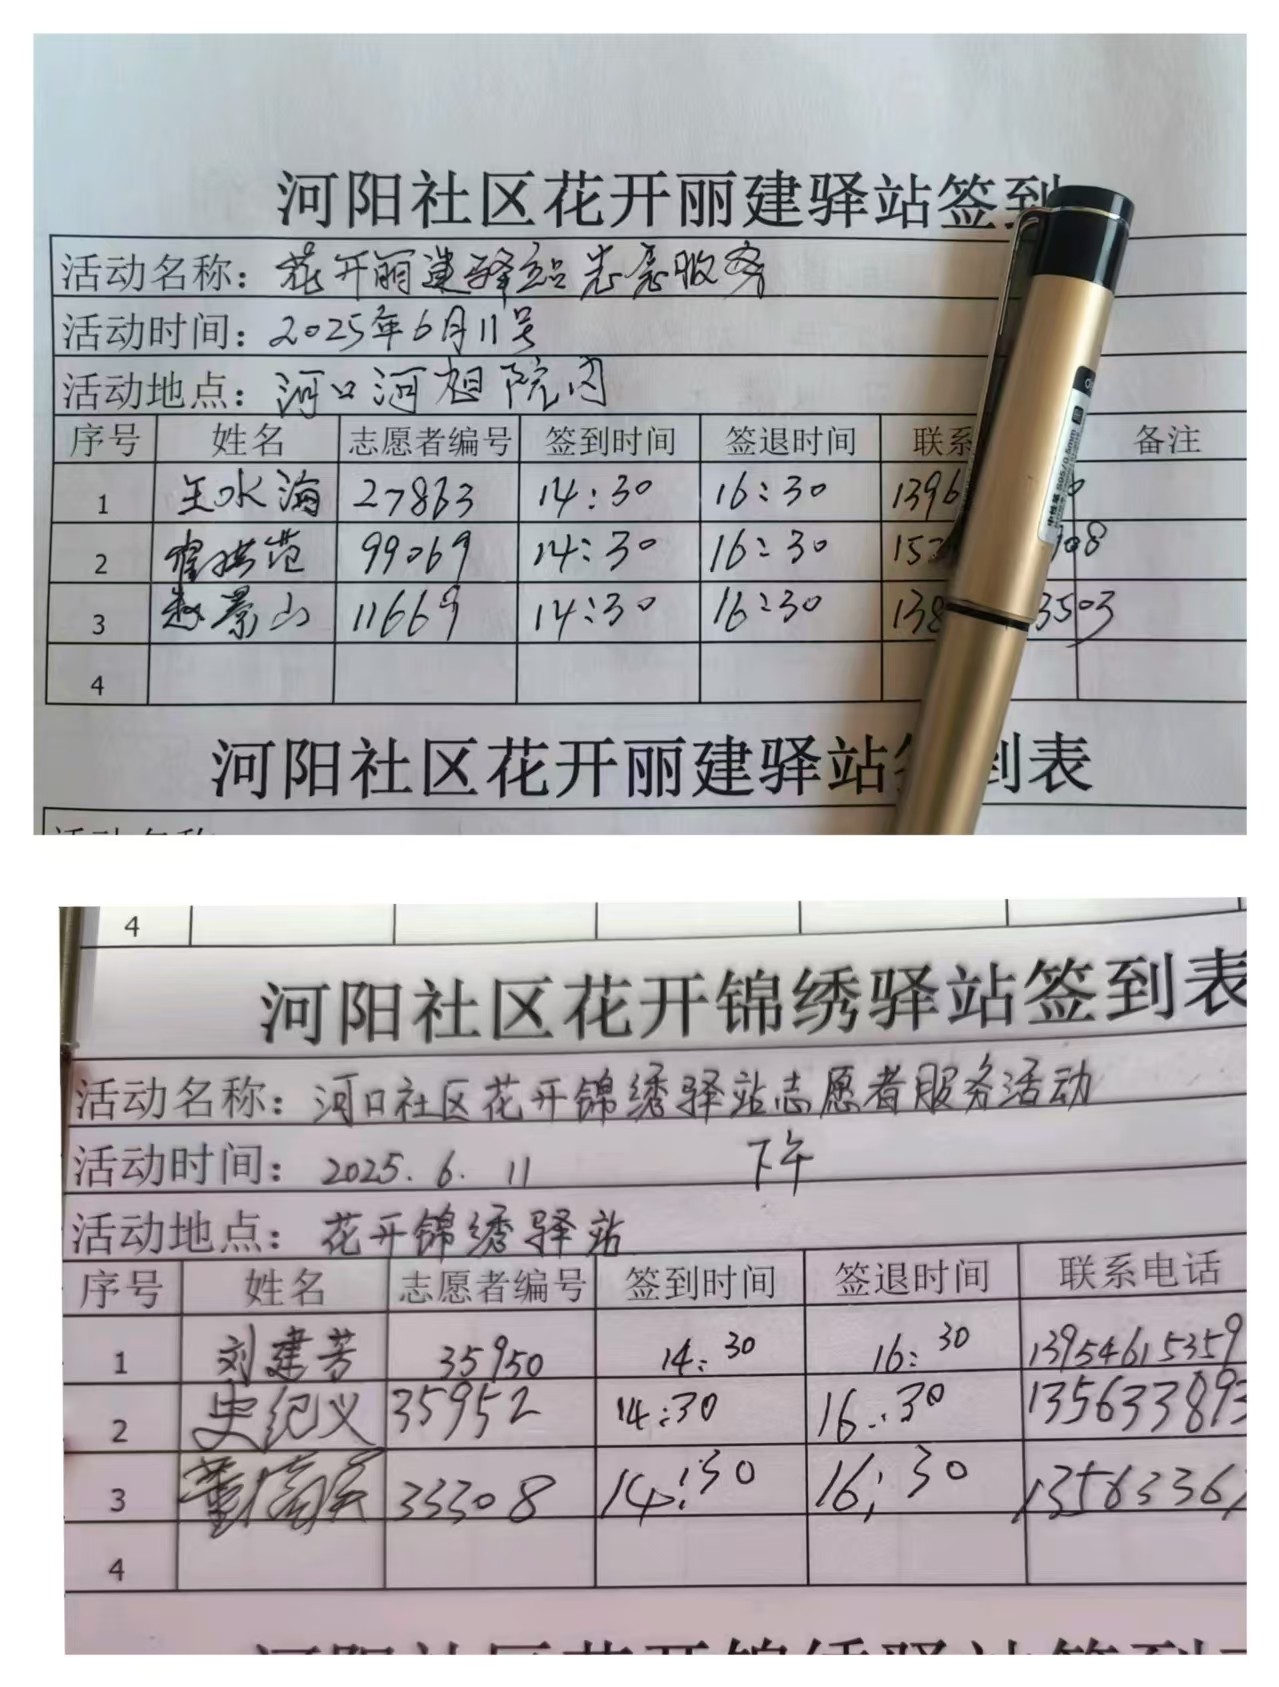 河阳社区花开丽建驿站签到
活动名称：花开丽建驿站志愿服务
活动时间：2025年6月11号
活动地点：河口河畑院内
序号 姓名 志愿者编号 签到时间 签退时间 联系 备注
1 王水海 27863 14:30 16:30 1396
2 范 99069 14:30 16:30 15 08
3 赵景山 11669 14:30 16:30 138 3503
4
河阳社区花开丽建驿站 到表
活动名称
4
河阳社区花开锦绣驿站签到表
活动名称：河口社区花开锦绣驿站志愿者服务活动
活动时间：2025.6.11 下午
活动地点：花开锦绣驿站
序号 姓名 志愿者编号 签到时间 签退时间 联系电话
1 刘建芳 35950 14:30 16:30 13954615359
2 史纪义 35952 14:30 16:30 135633893
3 董 33308 14:30 16:30 13563367
4
河阳社区花开锦绣驿站签到